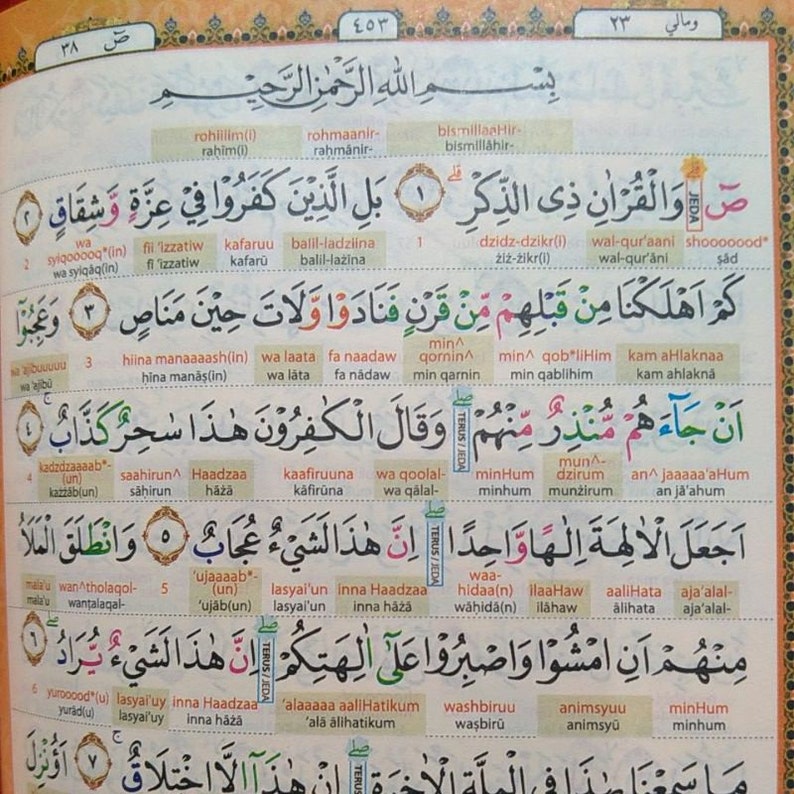 ومالي ٢٣
٤٥٣
صٓ ٣٨
بِسْمِ اللّٰهِ الرَّحْمٰنِ الرَّحِيْمِ
bismillaaHir- rohmaanir- rohiilim(i)
bismillâhir- rahmânir- rahîm(i)
صٓ JEDA وَالْقُرْاٰنِ ذِى الذِّكْرِ ١ بَلِ الَّذِيْنَ كَفَرُوْا فِيْ عِزَّةٍ وَّشِقَاقٍ ٢
shooooood* wal-qur'aani dzidz-dzikr(i) 1 balil-ladziina kafaruu fii 'izzatiw wa syiqooooq*(in) 2
ṣād wal-qur'āni żiż-żikr(i) balil-lażina kafarū fī 'izzatiw wa syiqāq(in)
كَمْ اَهْلَكْنَا مِنْ قَبْلِهِمْ مِّنْ قَرْنٍ فَنَادَوْا وَّلَاتَ حِيْنَ مَنَاصٍ ٣ وَعَجِبُوْٓا
kam aHlaknaa min^ qob*liHim min^ qornin^ fa naadaw wa laata hiina manaaaash(in) 3 wa 'ajibuuuuu
kam ahlaknā min qablihim min qarnin fa nādaw wa lāta ḥīna manāṣ(in) wa 'ajibū
اَنْ جَاۤءَهُمْ مُّنْذِرٌ مِّنْهُمْ TERUS / JEDA وَقَالَ الْكٰفِرُوْنَ هٰذَا سٰحِرٌ كَذَّابٌ ٤
an^ jaaaaa'aHum mun^-dzirum minHum wa qoolal- kaafiruuna Haadzaa saahirun^ kadzdzaaaab*-(un) 4
an jā'ahum munżirum minhum wa qālal- kāfirūna hāżā sāḥirun każżāb(un)
اَجَعَلَ الْاٰلِهَةَ اِلٰهًا وَّاحِدًا TERUS / JEDA اِنَّ هٰذَا لَشَيْءٌ عُجَابٌ ٥ وَانْطَلَقَ الْمَلَاُ
aja'alal- aaliHata ilaaHaw waa-hidaa(n) inna Haadzaa lasyai'un 'ujaaaab*-(un) 5 wan^tholaqol- mala'u
aja'alal- ālihata ilāhaw wāḥidā(n) inna hāżā lasyai'un 'ujāb(un) wanṭalaqal- mala'u
مِنْهُمْ اَنِ امْشُوْا وَاصْبِرُوْا عَلٰٓى اٰلِهَتِكُمْ TERUS / JEDA اِنَّ هٰذَا لَشَيْءٌ يُّرَادُ ٦
minHum animsyuu washbiruu 'alaaaaa aaliHatikum inna Haadzaa lasyai'uy yurooood*(u) 6
minhum animsyū waṣbirū 'alā ālihatikum inna hāżā lasyai'uy yurād(u)
مَا سَمِعْنَا بِهٰذَا فِى الْمِلَّةِ الْاٰخِرَةِ TERUS اِنْ هٰذَآ اِلَّا اخْتِلَاقٌ ٧ اَؤُنْزِلَ